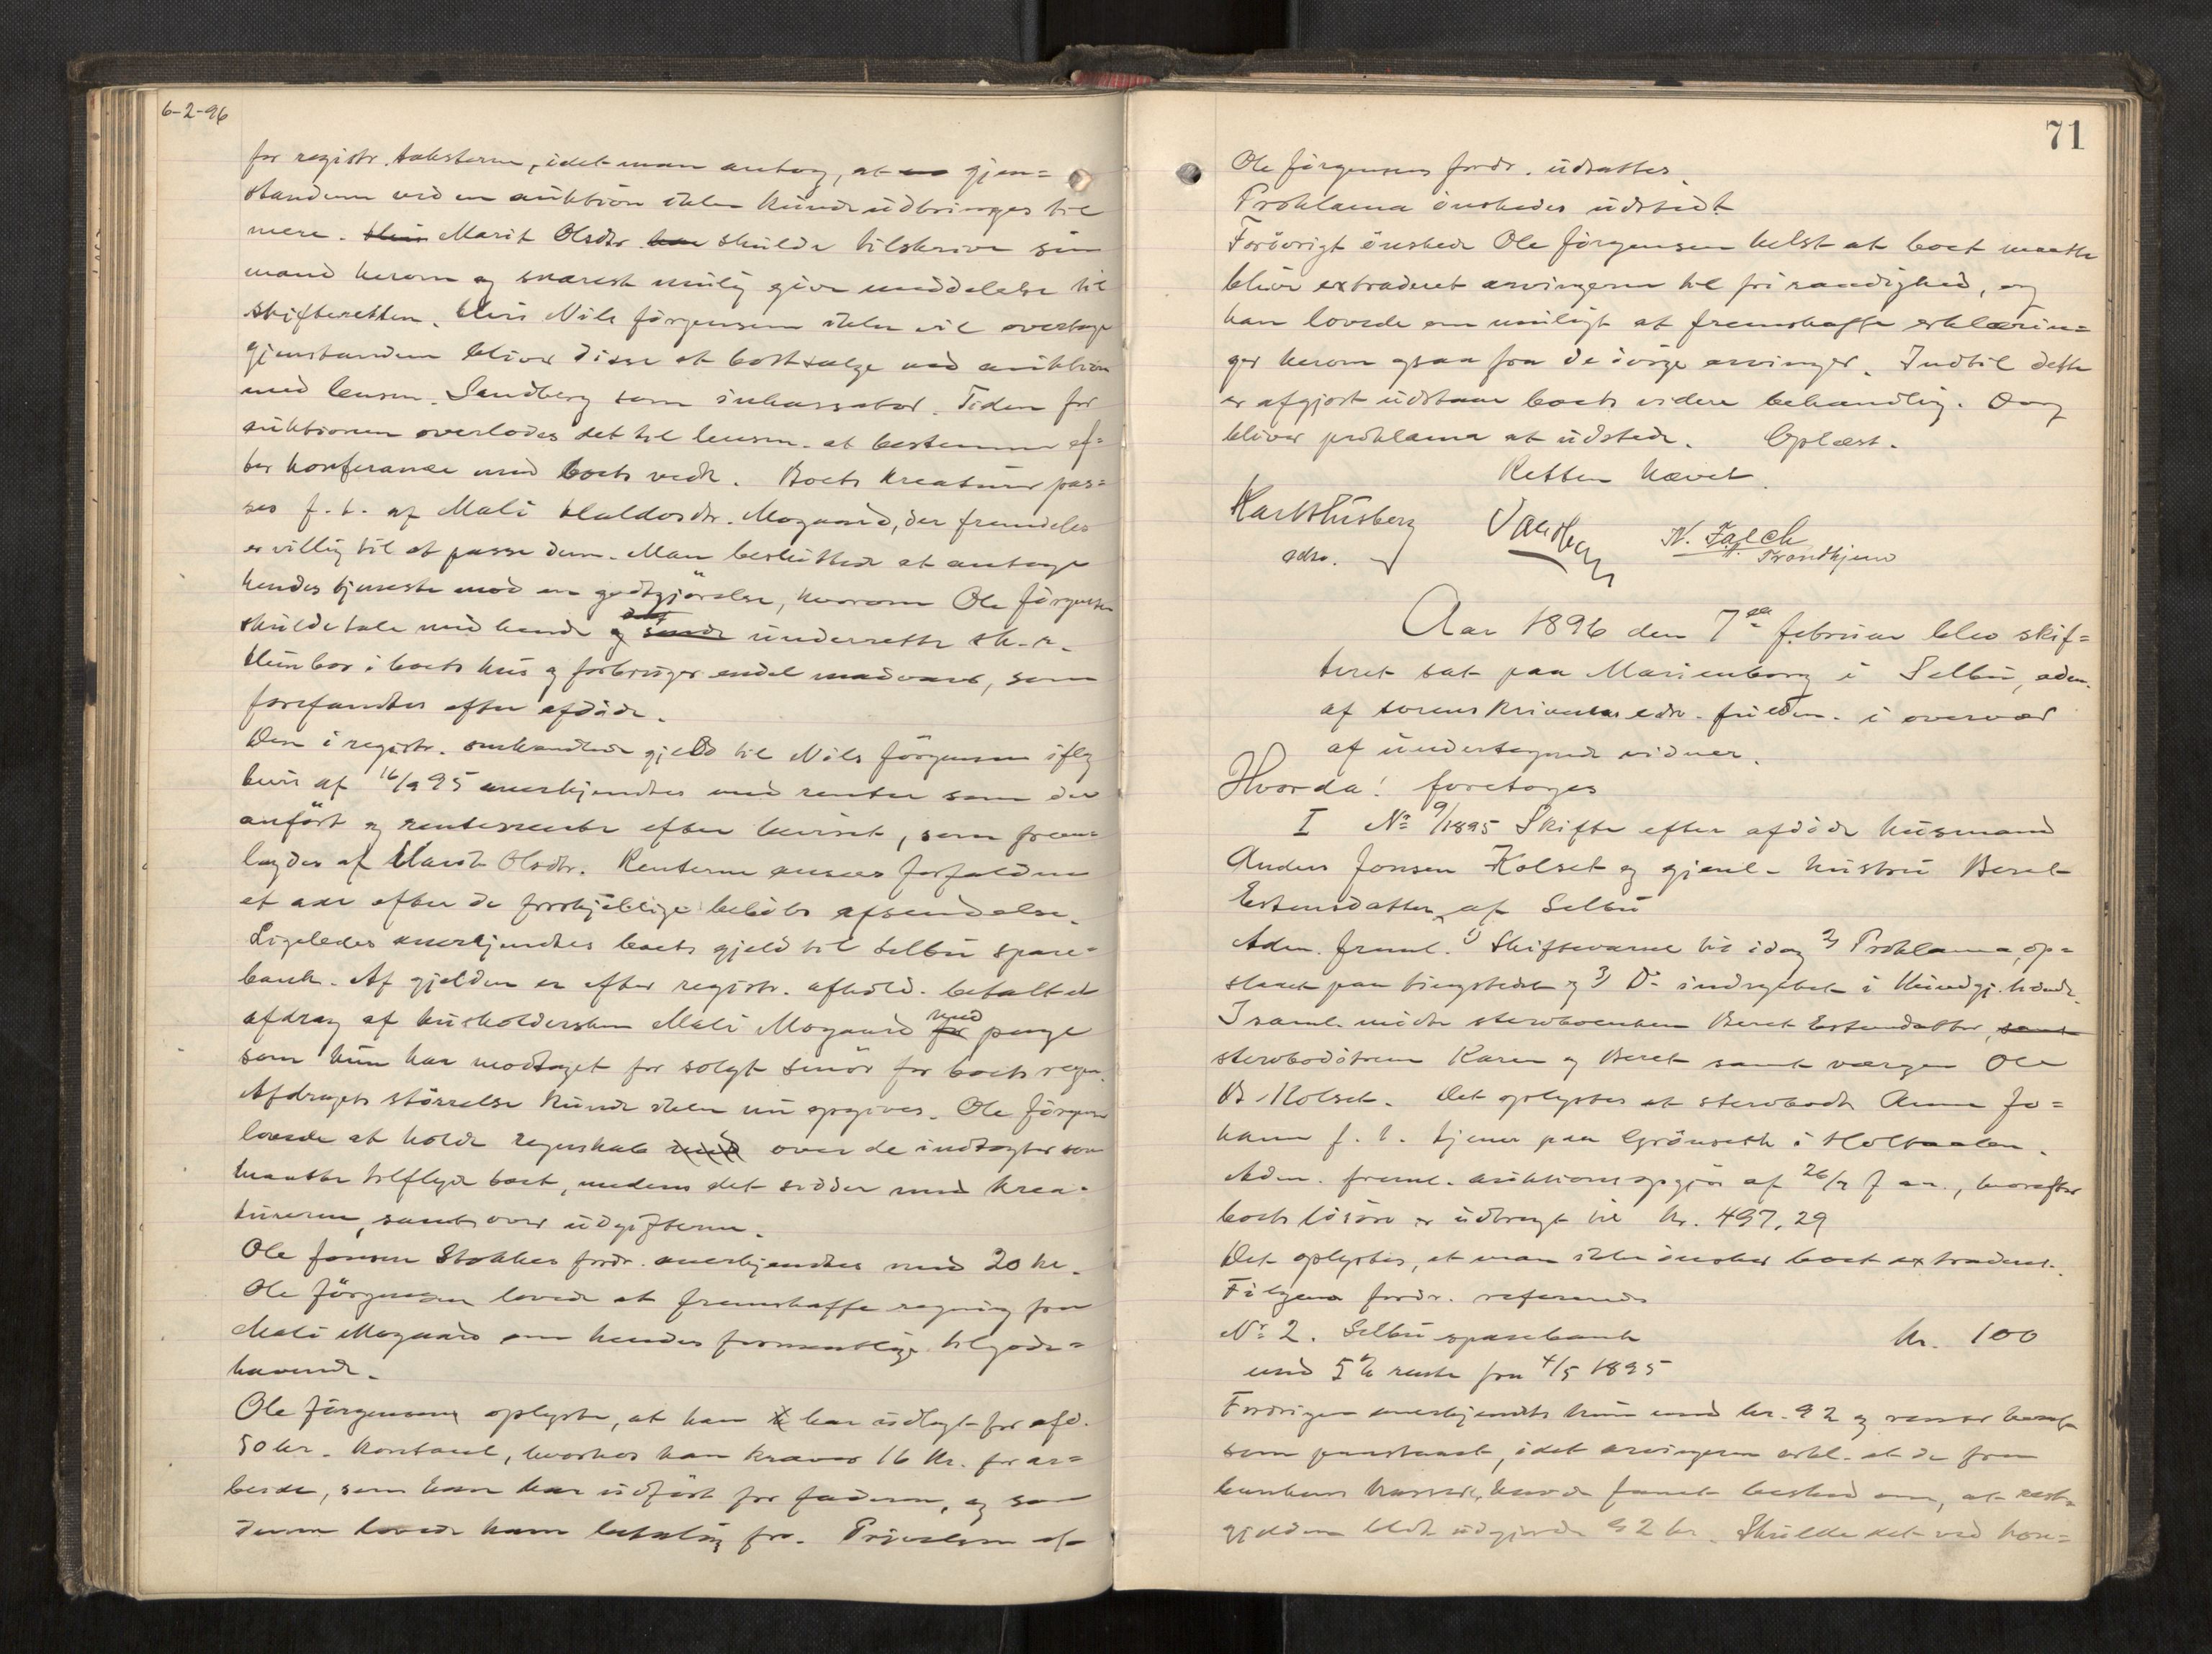 6-2-96
for registr. taksterne, idet man antog, at gjen=
standene ved en auktion ikke kunde udbringes til
mere. Marit Olsdtr skulde tilskrive sin
mand herom og snarest mulig give meddelelse til
skifteretten. Hvis Nils Jörgensen ikke vil overtage
gjenstandene bliver disse at bortsælge ved auktion
med lensm. Sandberg som inkassator. Tiden for
auktionen overlodes det til lensm. at bestemme ef=
ter konferance med boets vedk. Boets kreaturer pas=
ses f. t. af Mali Haldosdtr. Mogaard, der fremdeles
er villig til at passe dem. Man besluttede at antage
hendes tjeneste mod en godtgjörelse, hvorom Ole Jörgensen
skulde tale med hende og underrette sk. r.
Hun bor i boets hus og forbruger endel madvarer, som
forefandtes efter afdöde.
Den i registr. omhandlede gjeld til Nils Jörgensen iflg
bevis af 16/9 95 anerkjendtes med renter som der
anfört og rentesrente efter beviset, som frem=
lagdes af Marit Olsdtr. Renterne ansees forfaldne
et aar efter de forskjellige belöbs afsendelse.
Ligeledes anerkjendtes boets gjeld til Selbu spare=
bank. Af gjelden er efter registr. afhold. betalt et
afdrag af husholdersken Mali Mogaard med penge
som hun har modtaget for solgt smör for boets regn.
Afdragets störrelse kunde ikke nu opgives. Ole Jörgensen
lovede at holde regnskab over de indtægter som
maatte tilflyde boet, medens det sidder med krea=
turerne, samt over udgifterne.
Ole Jonsen Stokkes fordr. anerkjendtes med 20 kr.
Ole Jörgensen lovede at fremskaffe regning fra
Mali Mogaard om hendes formentlige tilgode=
havende.
Ole Jörgensen oplyste, at han har udlagt for afd.
50 kr. kontant, hvorhos han kræver 16 kr. for ar=
beide, som han har udfört for faderen, og som
denne lovede ham betaling for. Prövelsen af
71
Ole Jörgensens fordr. udsattes.
Proklama önskedes udstedt.
Forövrigt önskede Ole Jörgensen helst at boet maatte
blive extraderet arvingerne til fri raadighed, og
han lovede om muligt at fremskaffe erklærin=
ger herom ogsaa fra de övrige arvinger. Indtil dette
er afgjort udstaar boets videre behandling. Dog
bliver proklama at udstede. Oplæst.
Retten hævet.
Karl Husberg
edsv.
Sandberg
N. Falch
Trondhjem
Aar 1896 den 7de februar blev skif=
teret sat paa Marienborg i Selbu, adm.
af sorenskriverens edsv. fuldm. i overvær
af undertegnede vidner.
Hvorda! foretoges
I No 9/1895 Skifte efter afdöde husmand
Anders Jonsen Kolset og gjenl. hustru Beret
Estensdatter af Selbu
Adm. freml. 1) Skiftevarsel til idag 2) Proklama, op=
slaaet paa tingstedet og 3) Do indrykket i Kundgj.tidende.
I saml. mödte stervboenken Beret Estensdatter,
stervbodötrene Karen og Beret samt værgen Ole
B. Kolset. Det oplystes at stervbodt. Anne Jo=
hanne f. t. tjener paa Grönseth i Holtaalen.
Adm. freml. auktionsopgjör af 26/7 f. a., hvorefter
boets lösöre er udbragt til kr. 497,29
Det oplystes, at man ikke önsker boet extraderet.
Fölgende fordr. refereredes
No 2. Selbu sparebank kr. 100
med 5% rente fra 4/5 1895
Fordringen anerkjendtes kun med kr. 92 og renter
som paastaaet, idet arvingerne erkl. at de fra
bankens kasserer havde faaet besked om, at rest=
gjelden blot udgjorde 92 kr. Skulde det ved kon=